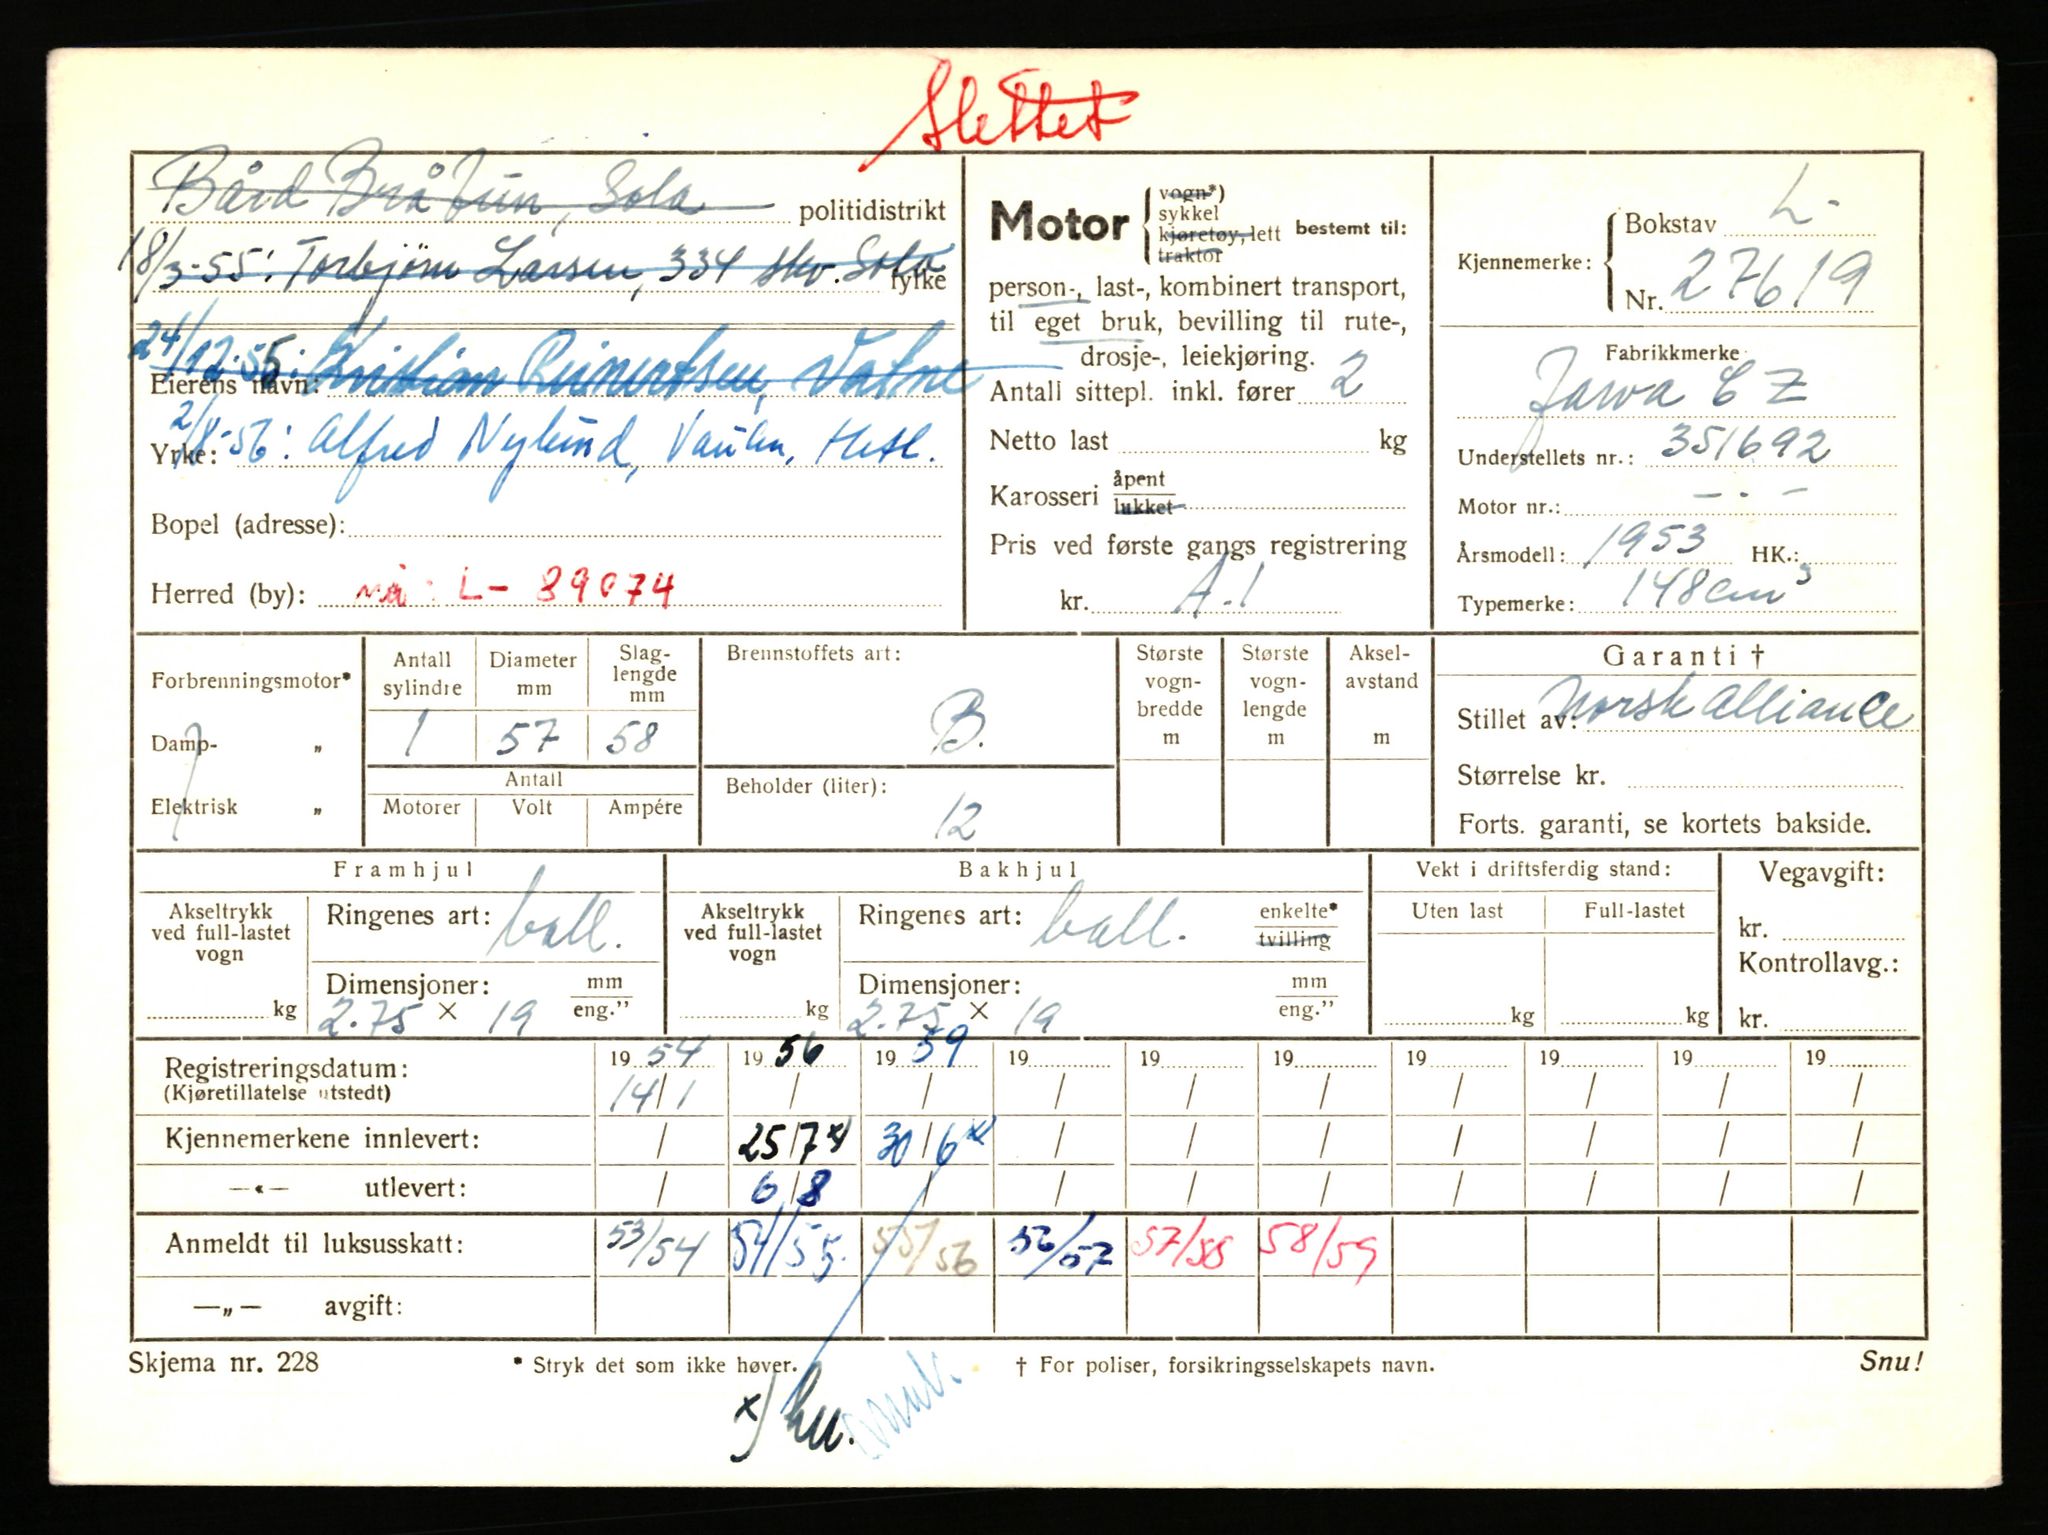 Slettet
Bård Bråtun, Sola politidistrikt
18/3-55: Torbjørn Larsen, 334 skv. Sola fylke
24/12-55: Kristian Reinertsen, Vatne
Eierens navn:
Yrke: 2/8-56: Alfred Nylund, Vaulen, Hetl.
Bopel (adresse):
Herred (by): nå: L- 89074
Motor
vogn*)
sykkel
kjøretøy, lett
traktor
bestemt til:
person-, last-, kombinert transport,
til eget bruk, bevilling til rute-,
drosje-, leiekjøring.
Antall sittepl. inkl. fører 2
Netto last kg
Karosseri åpent
lukket
Pris ved første gangs registrering
kr. A.1
Kjennemerke: Bokstav L-
Nr. 27619
Fabrikkmerke
Jawa CZ
Understellets nr.: 351692
Motor nr.: - . -
Årsmodell: 1953 HK.:
Typemerke: 148cm³
Forbrenningsmotor*
Damp- „
Elektrisk „
Antall sylindre Diameter mm Slaglengde mm
1 57 58
Antall
Motorer Volt Ampére
Brennstoffets art:
B.
Beholder (liter):
12
Største vognbredde m
Største vognlengde m
Akselavstand m
Garanti †
Stillet av: Norsk Alliance
Størrelse kr.
Forts. garanti, se kortets bakside.
Framhjul
Akseltrykk ved full-lastet vogn
kg
Ringenes art: ball.
Dimensjoner: mm
2.75 × 19 eng.”
Bakhjul
Akseltrykk ved full-lastet vogn
kg
Ringenes art: ball. enkelte*
tvilling
Dimensjoner: mm
2.75 × 19 eng.”
Vekt i driftsferdig stand:
Uten last Full-lastet
kg kg
Vegavgift:
kr.
Kontrollavg.:
kr.
Registreringsdatum: 19 54 19 56 19 59 19 19 19 19 19 19 19
(Kjøretillatelse utstedt) 14/1 / / / / / / / / /
Kjennemerkene innlevert: / 25/7 x) 30/6 x) / / / / / / /
—«— utlevert: / 6/8 / / / / / / / /
Anmeldt til luksusskatt: 53/54 54/55. 55/56 56/57 57/58 58/59
—„— avgift:
Skjema nr. 228 * Stryk det som ikke høver. † For poliser, forsikringsselskapets navn. Snu!
x)